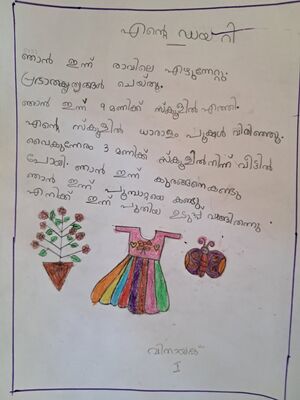 എന്റെ ഡയറി
ഞാൻ ഇന്ന് രാവിലെ എഴുന്നേറ്റു
പ്രഭാതകൃത്യങ്ങൾ ചെയ്തു.
ഞാൻ ഇന്ന് 9 മണിക്ക് സ്കൂളിൽ എത്തി.
എന്റെ സ്കൂളിൽ ധാരാളം പൂക്കൾ വിരിഞ്ഞു.
വൈകുന്നേരം 3 മണിക്ക് സ്കൂളിൽ നിന്ന് വീട്ടിൽ
പോയി. ഞാൻ ഇന്ന് കുരങ്ങനെ കണ്ടു
ഞാൻ ഇന്ന് പൂമ്പാറ്റയെ കണ്ടു.
എനിക്ക് ഇന്ന് പുതിയ ഉടുപ്പ് വാങ്ങിതന്നു
വിനായക്
I